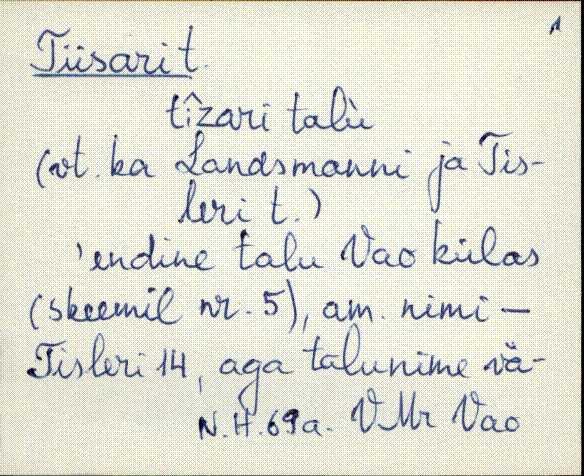 1
Tiisari t.
tîzari talù
(vt. ka Landsmanni ja Tis-
leri t.)
'endine talu Vao külas
(skeemil nr. 5), am. nimi —
Tisleri 14, aga talunime vä-
N.H. 69 a. VMr Vao